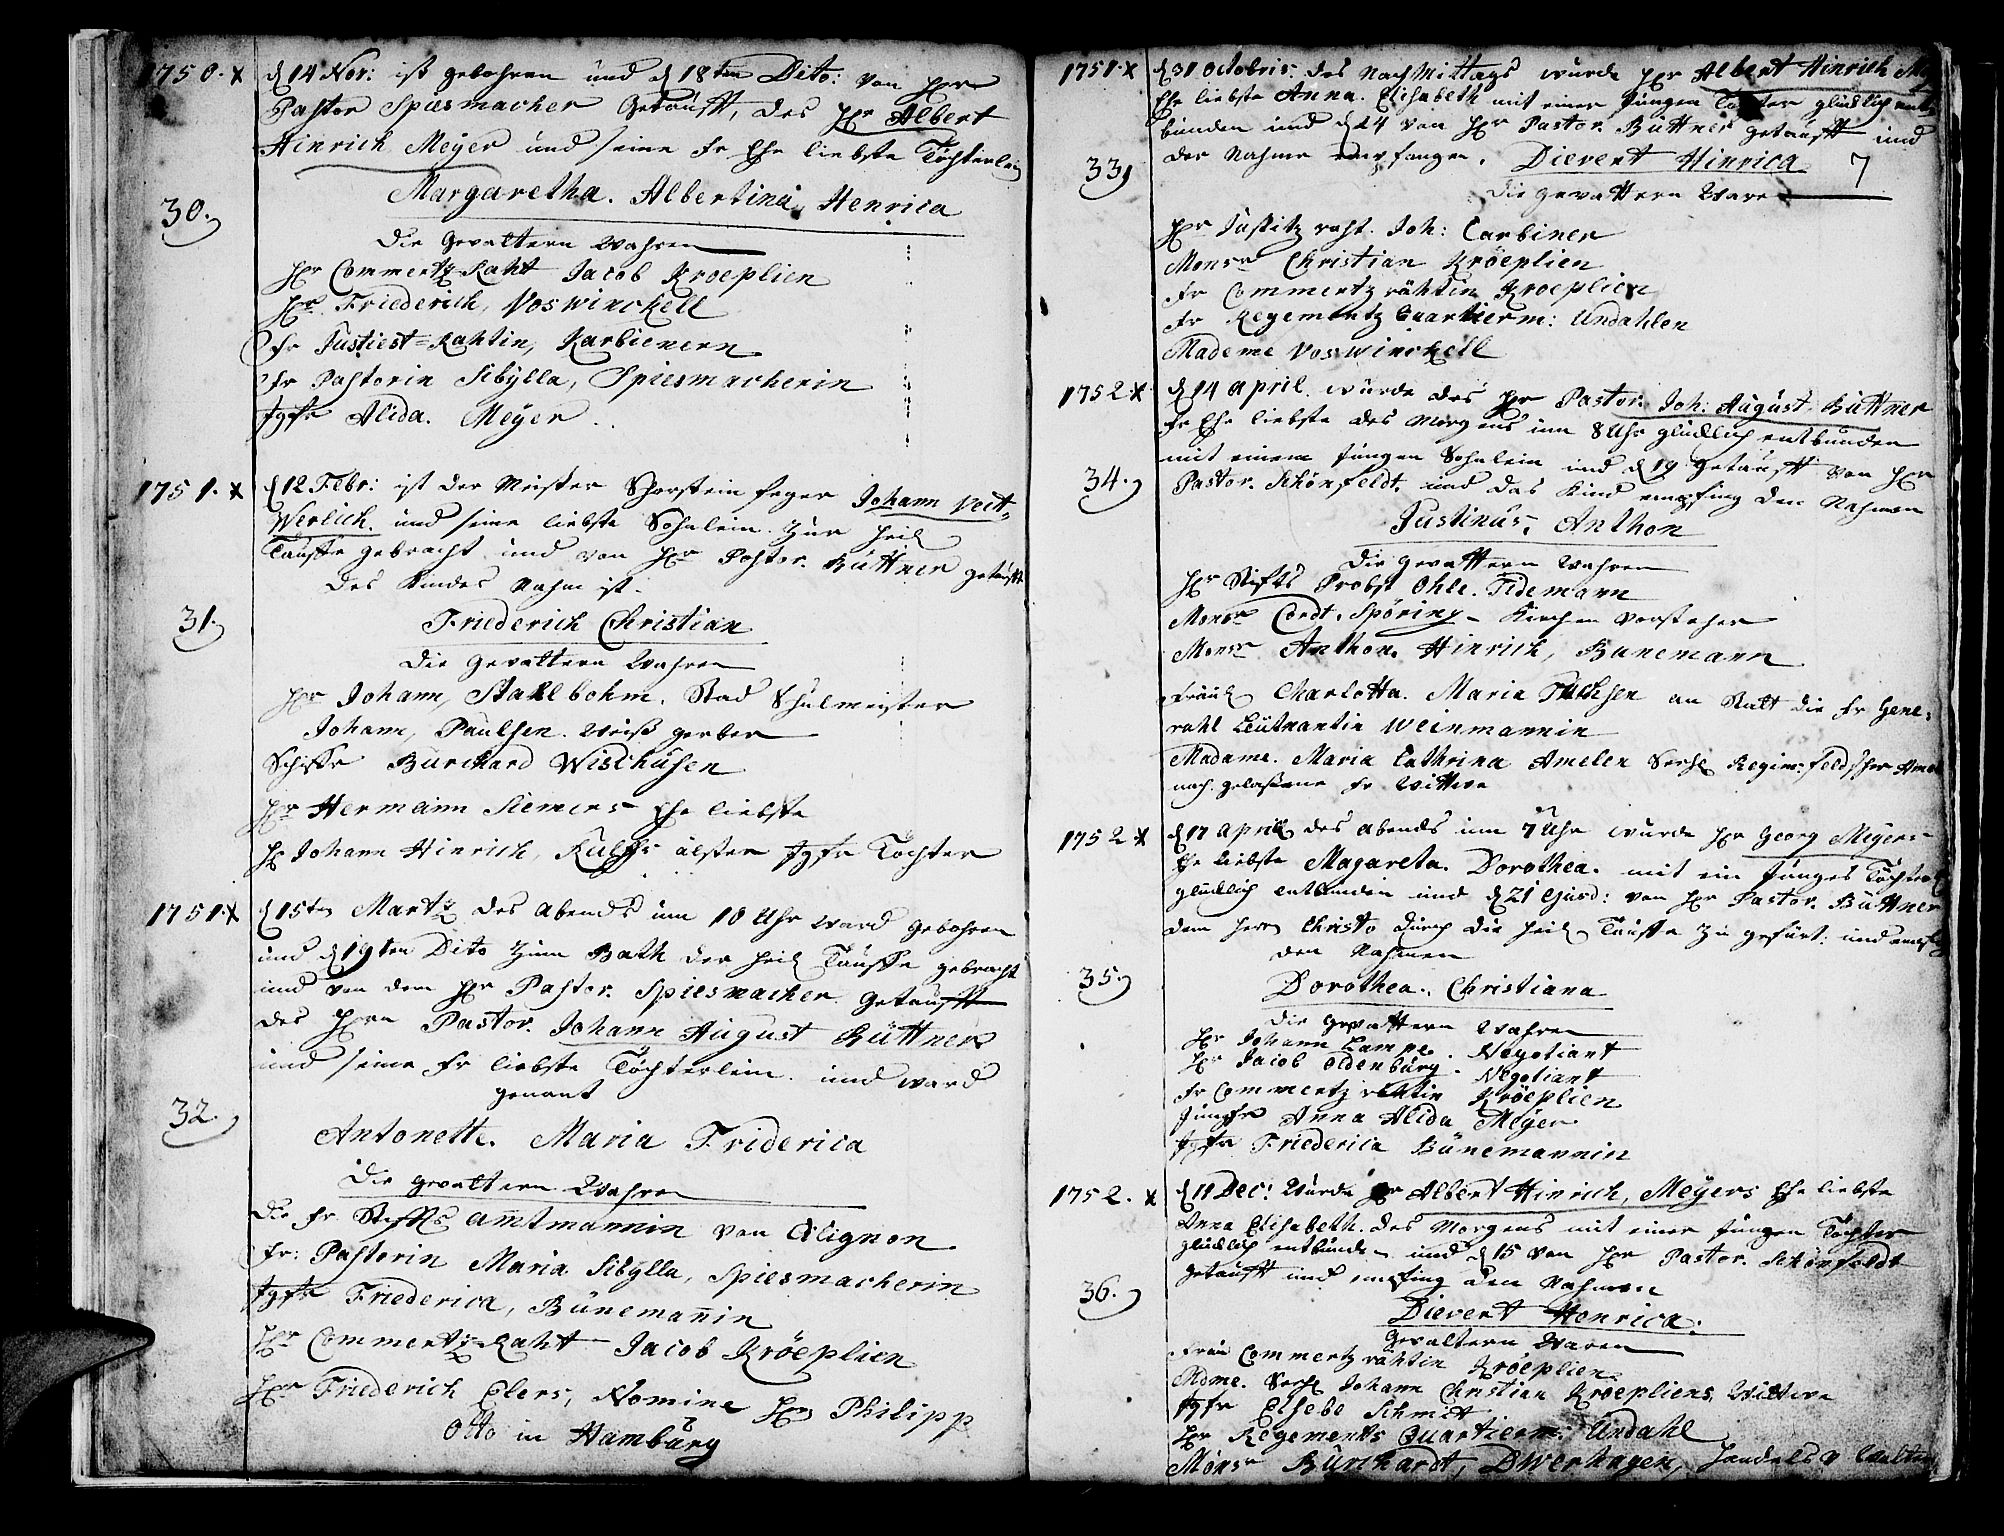 1750. x d 14 Nov: ist gebohren und d 18ten Dito: von Hrn
Pastor Spiesmacher Getaufft, des Hr Albert
Hinrich Meÿer und seine Fr Ehe liebste Töchterlein
30. Margaretha. Albertina, Henrica
Die Gevattern Wahren
Hr Commertz-Raht Jacob Kroeplien
Hr. Friederich, Voswinckell
Fr Justiest=Rahtin, Karbienern
Fr Pastorin Sibÿlla, Spiesmacherin
Jgfr Alida. Meÿer ..
1751. x d 12 Febr: ist der Meister Schorstein feger Johann Veit=
Werlich. und seine liebste Sohnlein. Zur Heil
Tauffe gebracht und von Hr Pastor. Büttner getaufft
Des Kindes Nahm ist.
31. Friederich Christian
Die Gevattern Wahren
Hr Johann, Stahlbohm. Stad Schulmeister
Johann, Paulsen. Weiß gerber
Schiffr Burchard Wischusen
Hr Hermann Siemers Ehe liebste
H Johann Hinrich, Rulffs älster Jgfr Tochter
1751. x d 15ten Martz des Abends um 10 Uhr ward gebohren
und d 19ten Dito Zum Bath der Heil Tauffe gebracht
und von dem Hr Pastor. Spiesmacher getaufft
des Hrn Pastor. Johann August Büttners
und seine Fr liebste Töchterlein. und ward
genant
32. Antonette. Maria Friderica
Die Gevattern Wahren
Die Fr Stiffts Amtmannin von Alignon
Fr: Pastorin Maria Sibÿlla, Spiesmacherin
Jgfr Friederica, Bünemannin
Hr Commertz-Raht Jacob Kröeplien
Hr Friederich Elers, Nomine Hrn Philipp
Otto in Hamburg
1751 x d 31 Octobris. des Nach Mittags wurde Hr Albert Hinrich
Ehe liebste Anna. Elisabeth mit einer Jungen Tochter glücklich ent
bunden und d 24 von Hr Pastor. Buttner getaufft und
33. der Nahme empfangen. Dievert Hinrica 7
Die gevattern Ware
Hr Justitz raht. Joh: Carbiner
Monsr Christian Kröeplien
Fr Commertz rähtin Kroeplien
Fr Regementz Quartierm: Undahlen
Madame Voswinckell
1752 x d 14 April. wurde des Hr Pastor. Joh: August. Buttner
Fr Ehe liebste des Morgens um 8 Uhr glücklich entbunden
mit einem jungen Sohnlein und d 19 Getaufft von Hr
34. Pastor. Schönfeldt. und das Kind empfing den Nahmen
Justinus. Anthon
Die Gevattern Wahren
Hr Stiffts Probst Ohle. Tidemann
Monsr Cordt. Spöring - Kirchen Vorsteher
Monsr Anthon. Hinrich, Bunemann
Freul Charlotta. Maria an Statt die Fr Gene=
rahl Leutnantin Weinmannin
Madame. Maria Cathrina Amelen Seehl Regim: feldscher
nach. gelaßene Fr Wittwe
1752 x d 17 April des Abends um 7 Uhr wurde Hr Georg Meyers
Ehe liebste Magareta. Dorothea. mit ein junges Töchterl
glücklich entbunden und d 21 Ejusd: von Hr Pastor. Büttner
dem Herrn Christo durch die Heil Tauffe zu gefürt: und
den Nahmen
35. Dorothea. Christiana
Die Gevattern Wahren
Hr Johann Lampe. Negotiant
Hr Jacob Oldenburg. Negotiant
Fr Commertz rähtin Kröeplien
Jungfr Anna Alida Meÿer
Jgfr Friederica Bünemannin
1752. x d 11 Dec: Wurde Hr Albert Hinrich, Meÿers Ehe liebste
Anna Elisabeth. des Morgens mit einer jungen Tochter
glücklich entbunden und d 15 von Hr Pastor. Schönfeldt
36. getaufft und empfing den Nahmen
Dievert Henrica:
Gevattern Waren
Frau Commertz rähtin Kröeplien
Mdme. Seehl Johann Christian Kroepliens Wittwe
Jgfr Elsebe Schmidt
Hr Regements Quartierm. Undahl
Monsr Burchardt, Dwerhagen, Handels